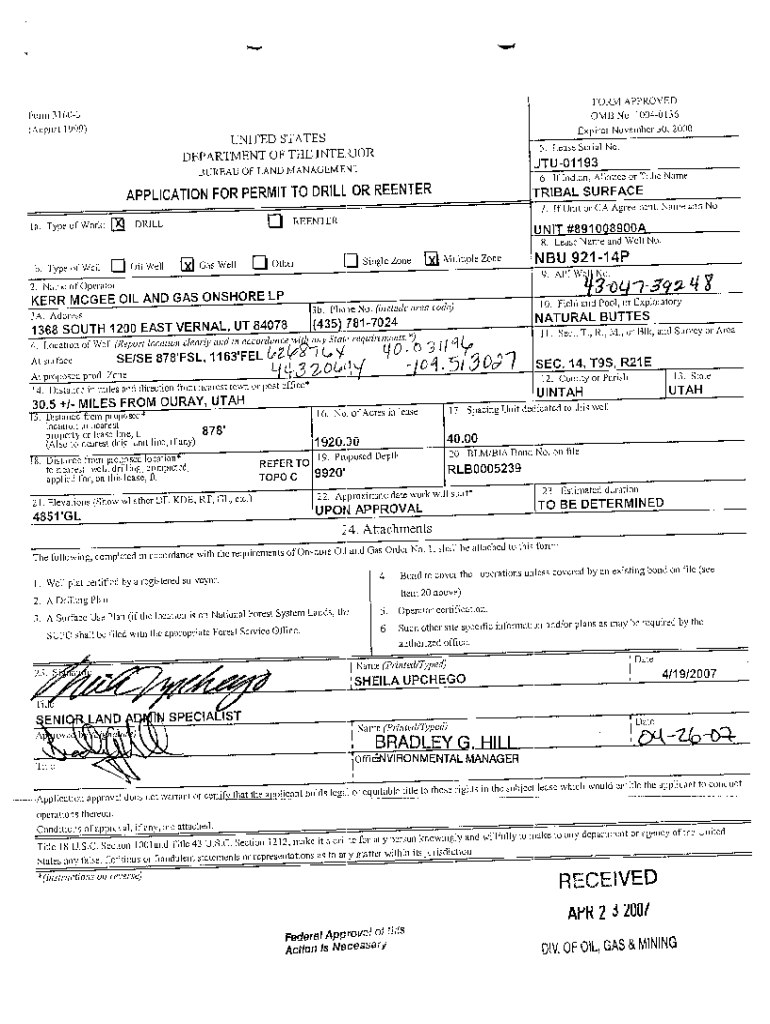 Form 3160-3
(August 1999)
FORM APPROVED
OMB No. 1004-0136
Expires November 30, 2000
UNITED STATES
DEPARTMENT OF THE INTERIOR
BUREAU OF LAND MANAGEMENT
APPLICATION FOR PERMIT TO DRILL OR REENTER
5. Lease Serial No.
UTU-01193
6. If Indian, Allottee or Tribe Name
TRIBAL SURFACE
7. If Unit or CA Agreement, Name and No.
UNIT #891008900A
1a. Type of Work: X DRILL REENTER
8. Lease Name and Well No.
NBU 921-14P
b. Type of Well: Oil Well X Gas Well Other Single Zone X Multiple Zone
9. API Well No.
43-047-39248
2. Name of Operator
KERR MCGEE OIL AND GAS ONSHORE LP
3A. Address
1368 SOUTH 1200 EAST VERNAL, UT 84078
3b. Phone No. (include area code)
(435) 781-7024
10. Field and Pool, or Exploratory
NATURAL BUTTES
4. Location of Well (Report location clearly and in accordance with any State requirements.*)
At surface SE/SE 878'FSL, 1163'FEL 626876X 40.031196
At proposed prod. Zone 4432064Y -109.513027
11. Sec., T., R., M., or Blk, and Survey or Area
SEC. 14, T9S, R21E
14. Distance in miles and direction from nearest town or post office*
30.5 +/- MILES FROM OURAY, UTAH
12. County or Parish
UINTAH
13. State
UTAH
15. Distance from proposed*
location to nearest
property or lease line, ft.
(Also to nearest drig. unit line, if any)
878'
16. No. of Acres in lease
1920.00
17. Spacing Unit dedicated to this well
40.00
18. Distance from proposed location*
to nearest well, drilling, completed,
applied for, on this lease, ft.
REFER TO
TOPO C
19. Proposed Depth
9920'
20. BLM/BIA Bond No. on file
RLB0005239
21. Elevations (Show whether DF, KDB, RT, GL, etc.)
4851'GL
22. Approximate date work will start*
UPON APPROVAL
23. Estimated duration
TO BE DETERMINED
24. Attachments
The following, completed in accordance with the requirements of Onshore Oil and Gas Order No. 1, shall be attached to this form:
1. Well plat certified by a registered surveyor.
2. A Drilling Plan
3. A Surface Use Plan (if the location is on National Forest System Lands, the
SUPO shall be filed with the appropriate Forest Service Office.
4. Bond to cover the operations unless covered by an existing bond on file (see
Item 20 above)
5. Operator certification.
6. Such other site specific information and/or plans as may be required by the
authorized office.
25. Signature
Sheila Upchego
Name (Printed/Typed)
SHEILA UPCHEGO
Date
4/19/2007
Title
SENIOR LAND ADMIN SPECIALIST
Approved by (Signature)
Name (Printed/Typed)
BRADLEY G. HILL
Date
04-26-07
Title
Office
ENVIRONMENTAL MANAGER
Application approval does not warrant or certify that the applicant holds legal or equitable title to those rights in the subject lease which would entitle the applicant to conduct
operations thereon.
Conditions of approval, if any, are attached.
Title 18 U.S.C. Section 1001and Title 43 U.S.C. Section 1212, make it a crime for any person knowingly and willfully to make to any department or agency of the United
States any false, fictitious or fraudulent statements or representations as to any matter within its jurisdiction
*(Instructions on reverse)
RECEIVED
APR 23 2007
DIV. OF OIL, GAS & MINING
Federal Approval of this
Action is Necessary